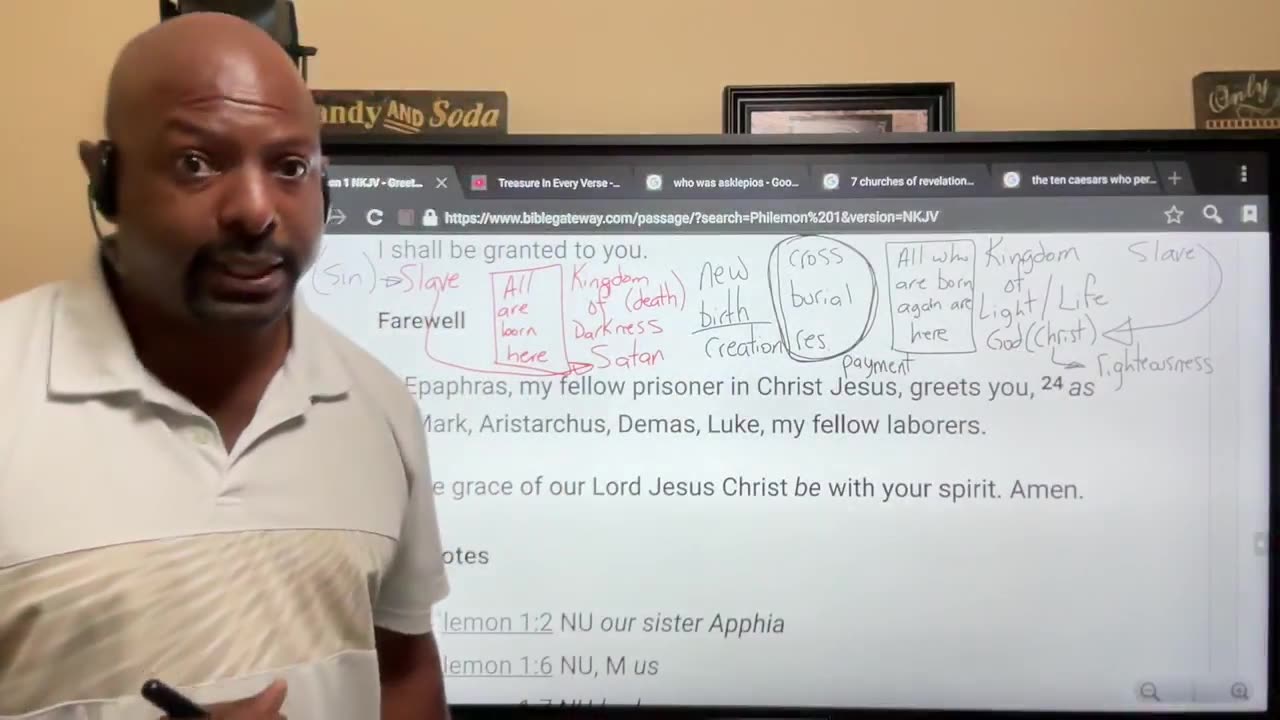 andy AND Soda
Only
on 1 NKJV - Greet...
Treasure In Every Verse -...
who was asklepios - Goo...
7 churches of revelation...
the ten caesars who per...
https://www.biblegateway.com/passage/?search=Philemon%201&version=NKJV
I shall be granted to you.
(Sin) Slave
All
are
born
here
Kingdom
of (death)
Darkness
Satan
new
birth
Creation
cross
burial
res
payment
All who
are born
again are
here
Kingdom
of
Light/Life
God (Christ)
righteousness
Slave
Farewell
Epaphras, my fellow prisoner in Christ Jesus, greets you, 24 as
Mark, Aristarchus, Demas, Luke, my fellow laborers.
e grace of our Lord Jesus Christ be with your spirit. Amen.
otes
lemon 1:2 NU our sister Apphia
lemon 1:6 NU, M us